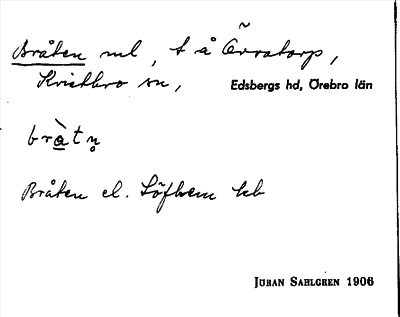 Bråten ml, t å Örratorp,
Kvistbro sn, Edsbergs hd, Örebro län
bràtn̥
Bråten el. Löfhem hb
JÖRAN SAHLGREN 1906